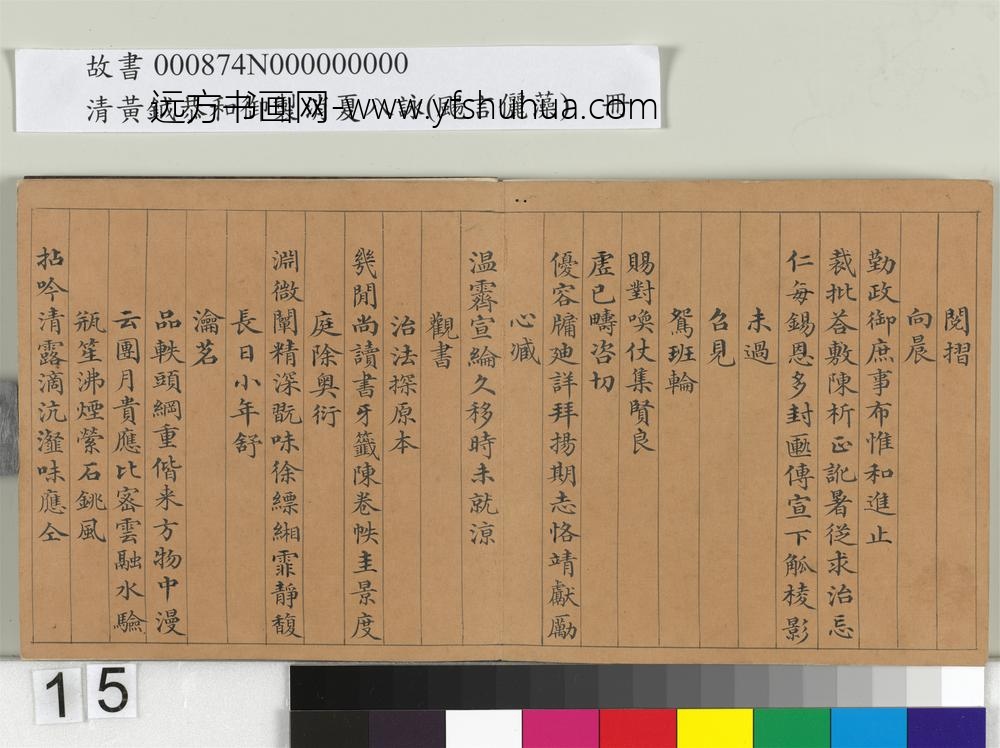 故書 000874N000000000
清黃鉞恭和御製消夏 詠
远方书画网-www.yfshuhua.com
閱摺
向晨
勤政御庶事布惟和進止
裁批荅敷陳析正訛暑從求治忘
仁每錫恩多封匭傳宣下觚棱影
未過
召見
鴛班輪
賜對喚仗集賢良
虛已疇咨切
優容牖廸詳拜揚期志恪靖獻勵
心臧
温霽宣綸久移時未就涼
觀書
治法探原本
幾閒尚讀書牙籤陳卷帙圭景度
庭除奧衍
淵微闡精深旣味徐縹緗霏靜馥
長日小年舒
瀹茗
品軼頭綱重偕来方物中漫
云團月貴應比宻雲融水驗
瓶笙沸煙縈石銚風
拈吟清露滴沆瀣味應仝
15